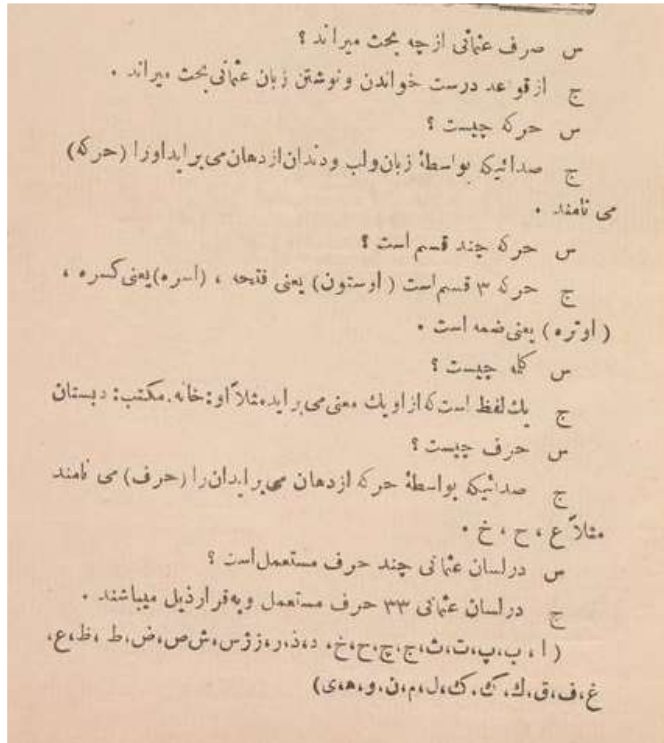 س صرف عثمانی از چه بحث میراند ؟
ج از قواعد درست خواندن و نوشتن زبان عثمانی بحث میراند .
س حرکه چیست ؟
ج صدائیکه بواسطهٔ زبان ولب ودندان از دهان می براید اورا (حرکه)
می نامند .
س حرکه چند قسم است ؟
ج حرکه ۳ قسم است ( اوستون) یعنی فتحه ، (اسره) یعنی کسره ،
( اوتره ) یعنی ضمه است .
س کلمه چیست ؟
ج یك لفظ است که از او یك معنی می براید مثلاً او: خانه. مکتب: دبستان
س حرف چیست ؟
ج صدائیکه بواسطهٔ حرکه از دهان می براید ان را (حرف) می نامند
مثلاً ع ، ح ، خ .
س در لسان عثمانی چند حرف مستعمل است ؟
ج در لسان عثمانی ۳۳ حرف مستعمل و به قرار ذیل میباشند .
( ا ، ب، پ، ت، ث، ج، چ، ح، خ، د، ذ، ر، ز ژ س، ش ص، ض، ط ، ظ، ع،
غ، ف، ق، ك، ڭ، گ، ل، م، ن، و، ه، ی)